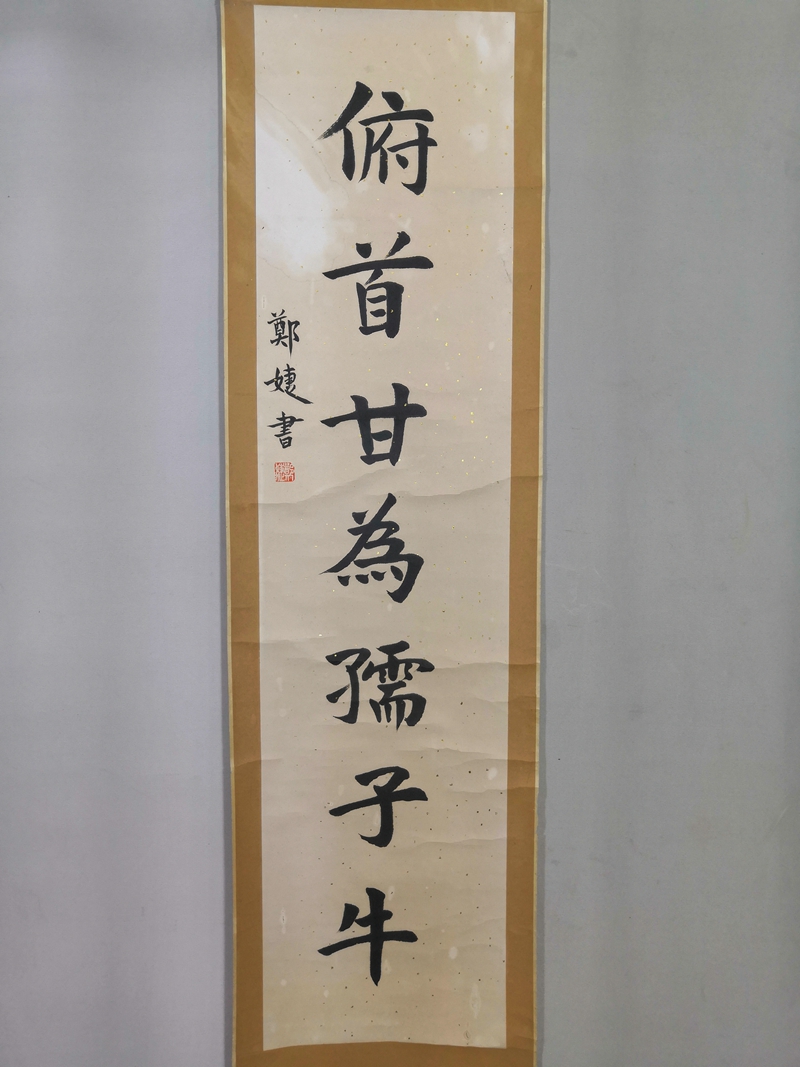 俯首甘為孺子牛
鄭婕書